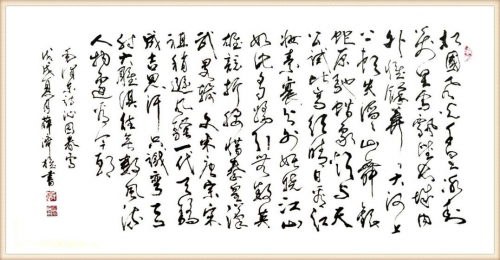 北國風光千里冰封
萬里雪飄望長城內
外惟餘莽莽大河上
下頓失滔滔山舞銀
蛇原馳蜡象欲与天
公試比高須晴日看红
妝素裹分外妖嬈江山
如此多嬌引無數英
雄競折腰惜秦皇漢
武略輸文采唐宗宋
祖稍遜風騷一代天驕
成吉思汗只識彎弓
射大雕俱往矣數風流
人物還看今朝
毛澤東詩沁園春雪
戊戌夏月薛 書